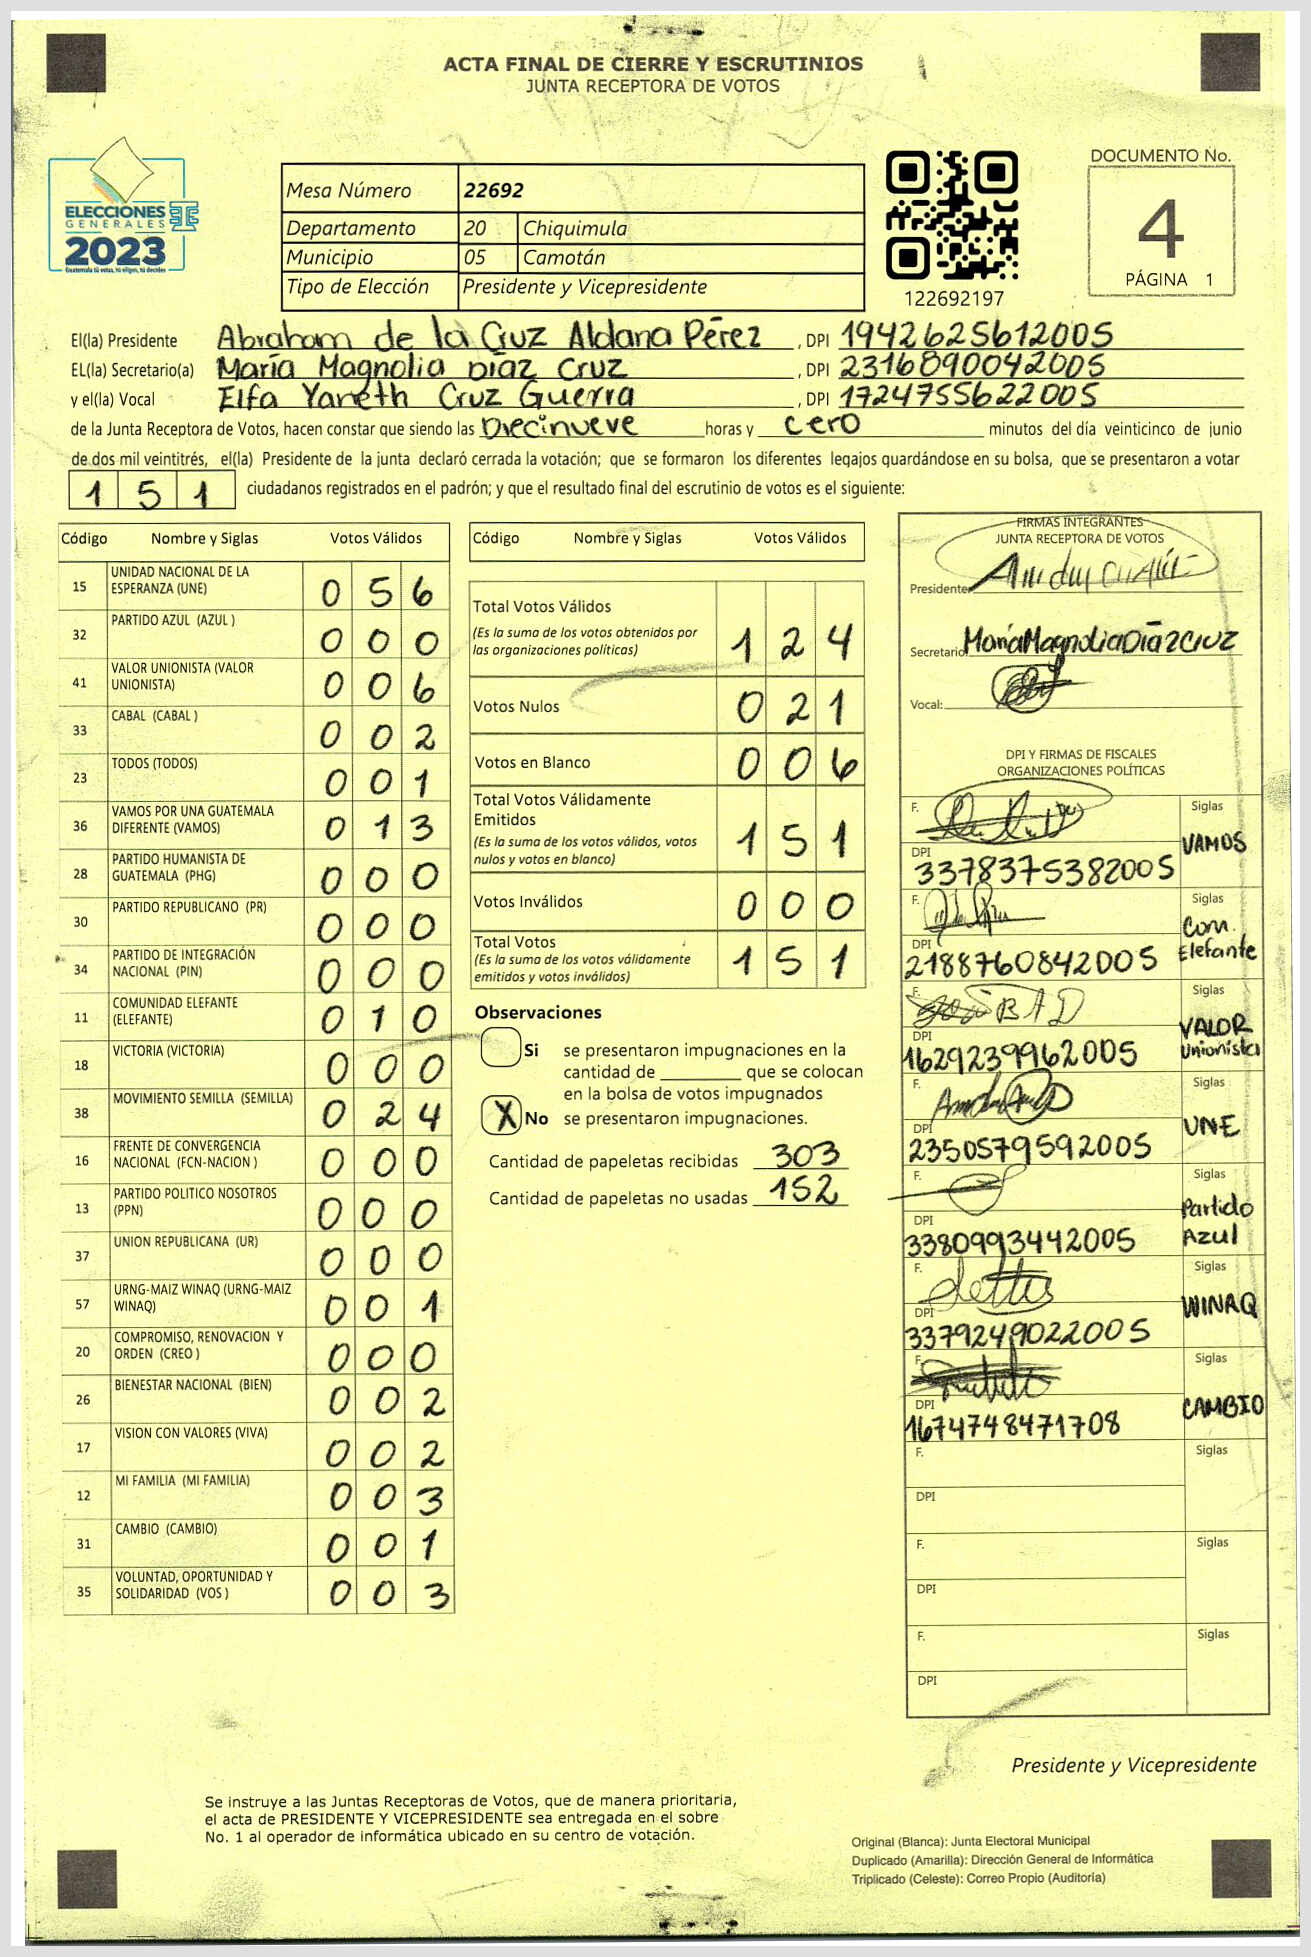 ACTA FINAL DE CIERRE Y ESCRUTINIOS
JUNTA RECEPTORA DE VOTOS
ELECCIONES
GENERALES
2023
Guatemala tú votas, tú eliges, tú decides
Mesa Número 22692
Departamento 20 Chiquimula
Municipio 05 Camotán
Tipo de Elección Presidente y Vicepresidente
122692197
DOCUMENTO No.
4
PÁGINA 1
El(la) Presidente Abraham de la Cruz Aldana Pérez , DPI 1942625612005
EL(la) Secretario(a) María Magnolia Díaz Cruz , DPI 2316890042005
y el(la) Vocal Elfa Yaneth Cruz Guerra , DPI 1724755622005
de la Junta Receptora de Votos, hacen constar que siendo las Diecinueve horas y cero minutos del día veinticinco de junio
de dos mil veintitrés, el(la) Presidente de la junta declaró cerrada la votación; que se formaron los diferentes legajos quardándose en su bolsa, que se presentaron a votar
1 5 1 ciudadanos registrados en el padrón; y que el resultado final del escrutinio de votos es el siguiente:
Código Nombre y Siglas Votos Válidos
15 UNIDAD NACIONAL DE LA ESPERANZA (UNE) 0 5 6
32 PARTIDO AZUL (AZUL ) 0 0 0
41 VALOR UNIONISTA (VALOR UNIONISTA) 0 0 6
33 CABAL (CABAL ) 0 0 2
23 TODOS (TODOS) 0 0 1
36 VAMOS POR UNA GUATEMALA DIFERENTE (VAMOS) 0 1 3
28 PARTIDO HUMANISTA DE GUATEMALA (PHG) 0 0 0
30 PARTIDO REPUBLICANO (PR) 0 0 0
34 PARTIDO DE INTEGRACIÓN NACIONAL (PIN) 0 0 0
11 COMUNIDAD ELEFANTE (ELEFANTE) 0 1 0
18 VICTORIA (VICTORIA) 0 0 0
38 MOVIMIENTO SEMILLA (SEMILLA) 0 2 4
16 FRENTE DE CONVERGENCIA NACIONAL (FCN-NACION ) 0 0 0
13 PARTIDO POLITICO NOSOTROS (PPN) 0 0 0
37 UNION REPUBLICANA (UR) 0 0 0
57 URNG-MAIZ WINAQ (URNG-MAIZ WINAQ) 0 0 1
20 COMPROMISO, RENOVACION Y ORDEN (CREO ) 0 0 0
26 BIENESTAR NACIONAL (BIEN) 0 0 2
17 VISION CON VALORES (VIVA) 0 0 2
12 MI FAMILIA (MI FAMILIA) 0 0 3
31 CAMBIO (CAMBIO) 0 0 1
35 VOLUNTAD, OPORTUNIDAD Y SOLIDARIDAD (VOS ) 0 0 3
Código Nombre y Siglas Votos Válidos
Total Votos Válidos 1 2 4
(Es la suma de los votos obtenidos por
las organizaciones políticas)
Votos Nulos 0 2 1
Votos en Blanco 0 0 6
Total Votos Válidamente
Emitidos 1 5 1
(Es la suma de los votos válidos, votos
nulos y votos en blanco)
Votos Inválidos 0 0 0
Total Votos 1 5 1
(Es la suma de los votos válidamente
emitidos y votos inválidos)
Observaciones
Si se presentaron impugnaciones en la
cantidad de ________ que se colocan
en la bolsa de votos impugnados
X No se presentaron impugnaciones.
Cantidad de papeletas recibidas 303
Cantidad de papeletas no usadas 152
FIRMAS INTEGRANTES
JUNTA RECEPTORA DE VOTOS
Presidente:
Secretario: María Magnolia Díaz Cruz
Vocal:
DPI Y FIRMAS DE FISCALES
ORGANIZACIONES POLÍTICAS
F. Siglas VAMOS
DPI 3378375382005
F. Siglas Com. Elefante
DPI 2188760842005
F. Siglas VALOR Unionista
DPI 1629239962005
F. Siglas UNE
DPI 2350579592005
F. Siglas Partido Azul
DPI 3380993442005
F. Siglas WINAQ
DPI 3379249022005
F. Siglas CAMBIO
DPI 1674748471708
F. Siglas
DPI
F. Siglas
DPI
F. Siglas
DPI
Presidente y Vicepresidente
Se instruye a las Juntas Receptoras de Votos, que de manera prioritaria,
el acta de PRESIDENTE Y VICEPRESIDENTE sea entregada en el sobre
No. 1 al operador de informática ubicado en su centro de votación.
Original (Blanca): Junta Electoral Municipal
Duplicado (Amarilla): Dirección General de Informática
Triplicado (Celeste): Correo Propio (Auditoría)